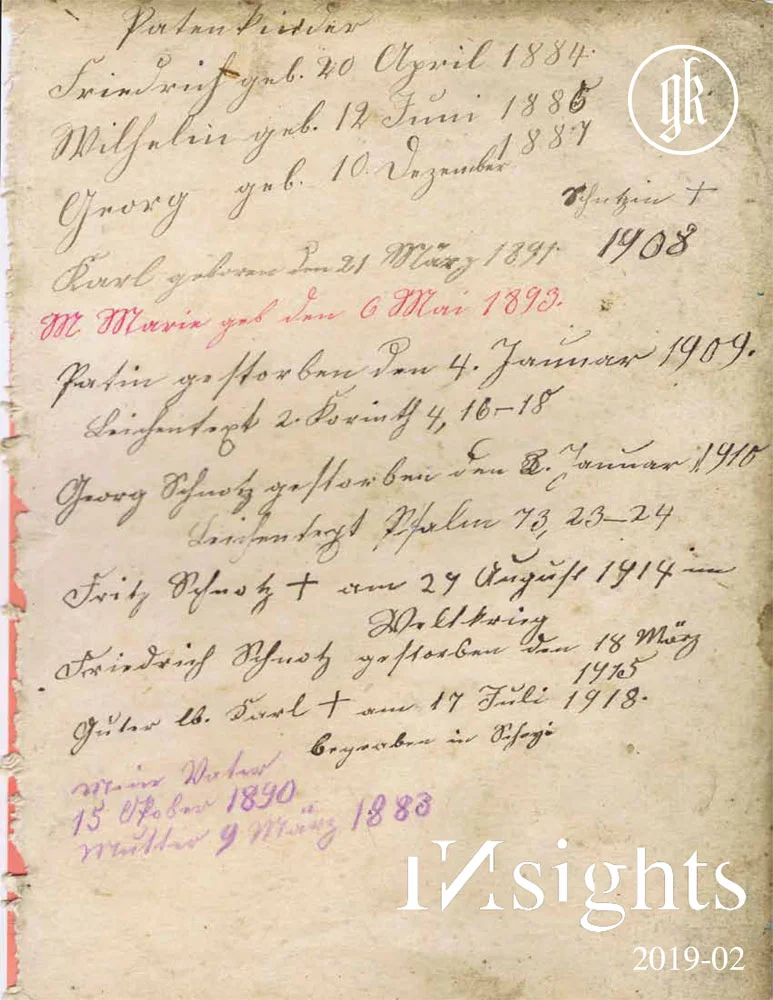 Patenkinder
gk
Friedrich geb. 20 April 1884.
Wilhelm geb. 12 Juni 1886
Georg geb. 10. Dezember 1887
Schnotzin †
1908
Karl geboren den 21 März 1891.
M. Marie geb den 6 Mai 1893.
Patin gestorben den 4. Januar 1909.
Leichentext 2. Korinth 4, 16–18
Georg Schnotz gestorben den 2. Januar 1910
Leichentext Psalm 73, 23–24
Fritz Schnotz † am 27 August 1914 im
Weltkrieg
Friedrich Schnotz gestorben den 18 März
1915
Guter lb. Karl † am 17 Juli 1918.
begraben in
Mein Vater
15 Oktober 1890
Mutter 9 März 1883
INsights
2019-02